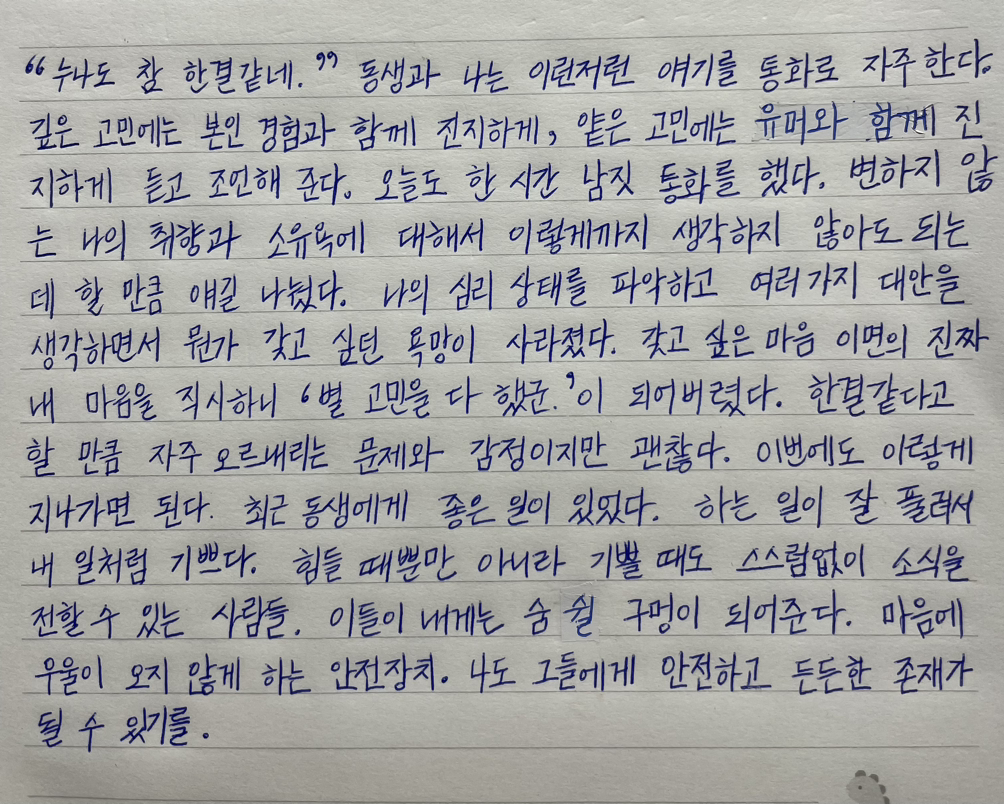 “누나도 참 한결같네.” 동생과 나는 이런저런 얘기를 통화로 자주 한다.
깊은 고민에는 본인 경험과 함께 진지하게, 얕은 고민에는 유머와 함께 진
지하게 듣고 조언해 준다. 오늘도 한 시간 남짓 통화를 했다. 변하지 않
는 나의 취향과 소유욕에 대해서 이렇게까지 생각하지 않아도 되는
데 할 만큼 얘길 나눴다. 나의 심리 상태를 파악하고 여러가지 대안을
생각하면서 뭔가 갖고 싶던 욕망이 사라졌다. 갖고 싶은 마음 이면의 진짜
내 마음을 직시하니 ‘별 고민을 다 했군.’이 되어버렸다. 한결같다고
할 만큼 자주 오르내리는 문제와 감정이지만 괜찮다. 이번에도 이렇게
지나가면 된다. 최근 동생에게 좋은 일이 있었다. 하는 일이 잘 풀려서
내 일처럼 기쁘다. 힘들 때뿐만 아니라 기쁠 때도 스스럼없이 소식을
전할 수 있는 사람들. 이들이 내게는 숨 쉴 구멍이 되어준다. 마음에
우울이 오지 않게 하는 안전장치. 나도 그들에게 안전하고 든든한 존재가
될 수 있기를.